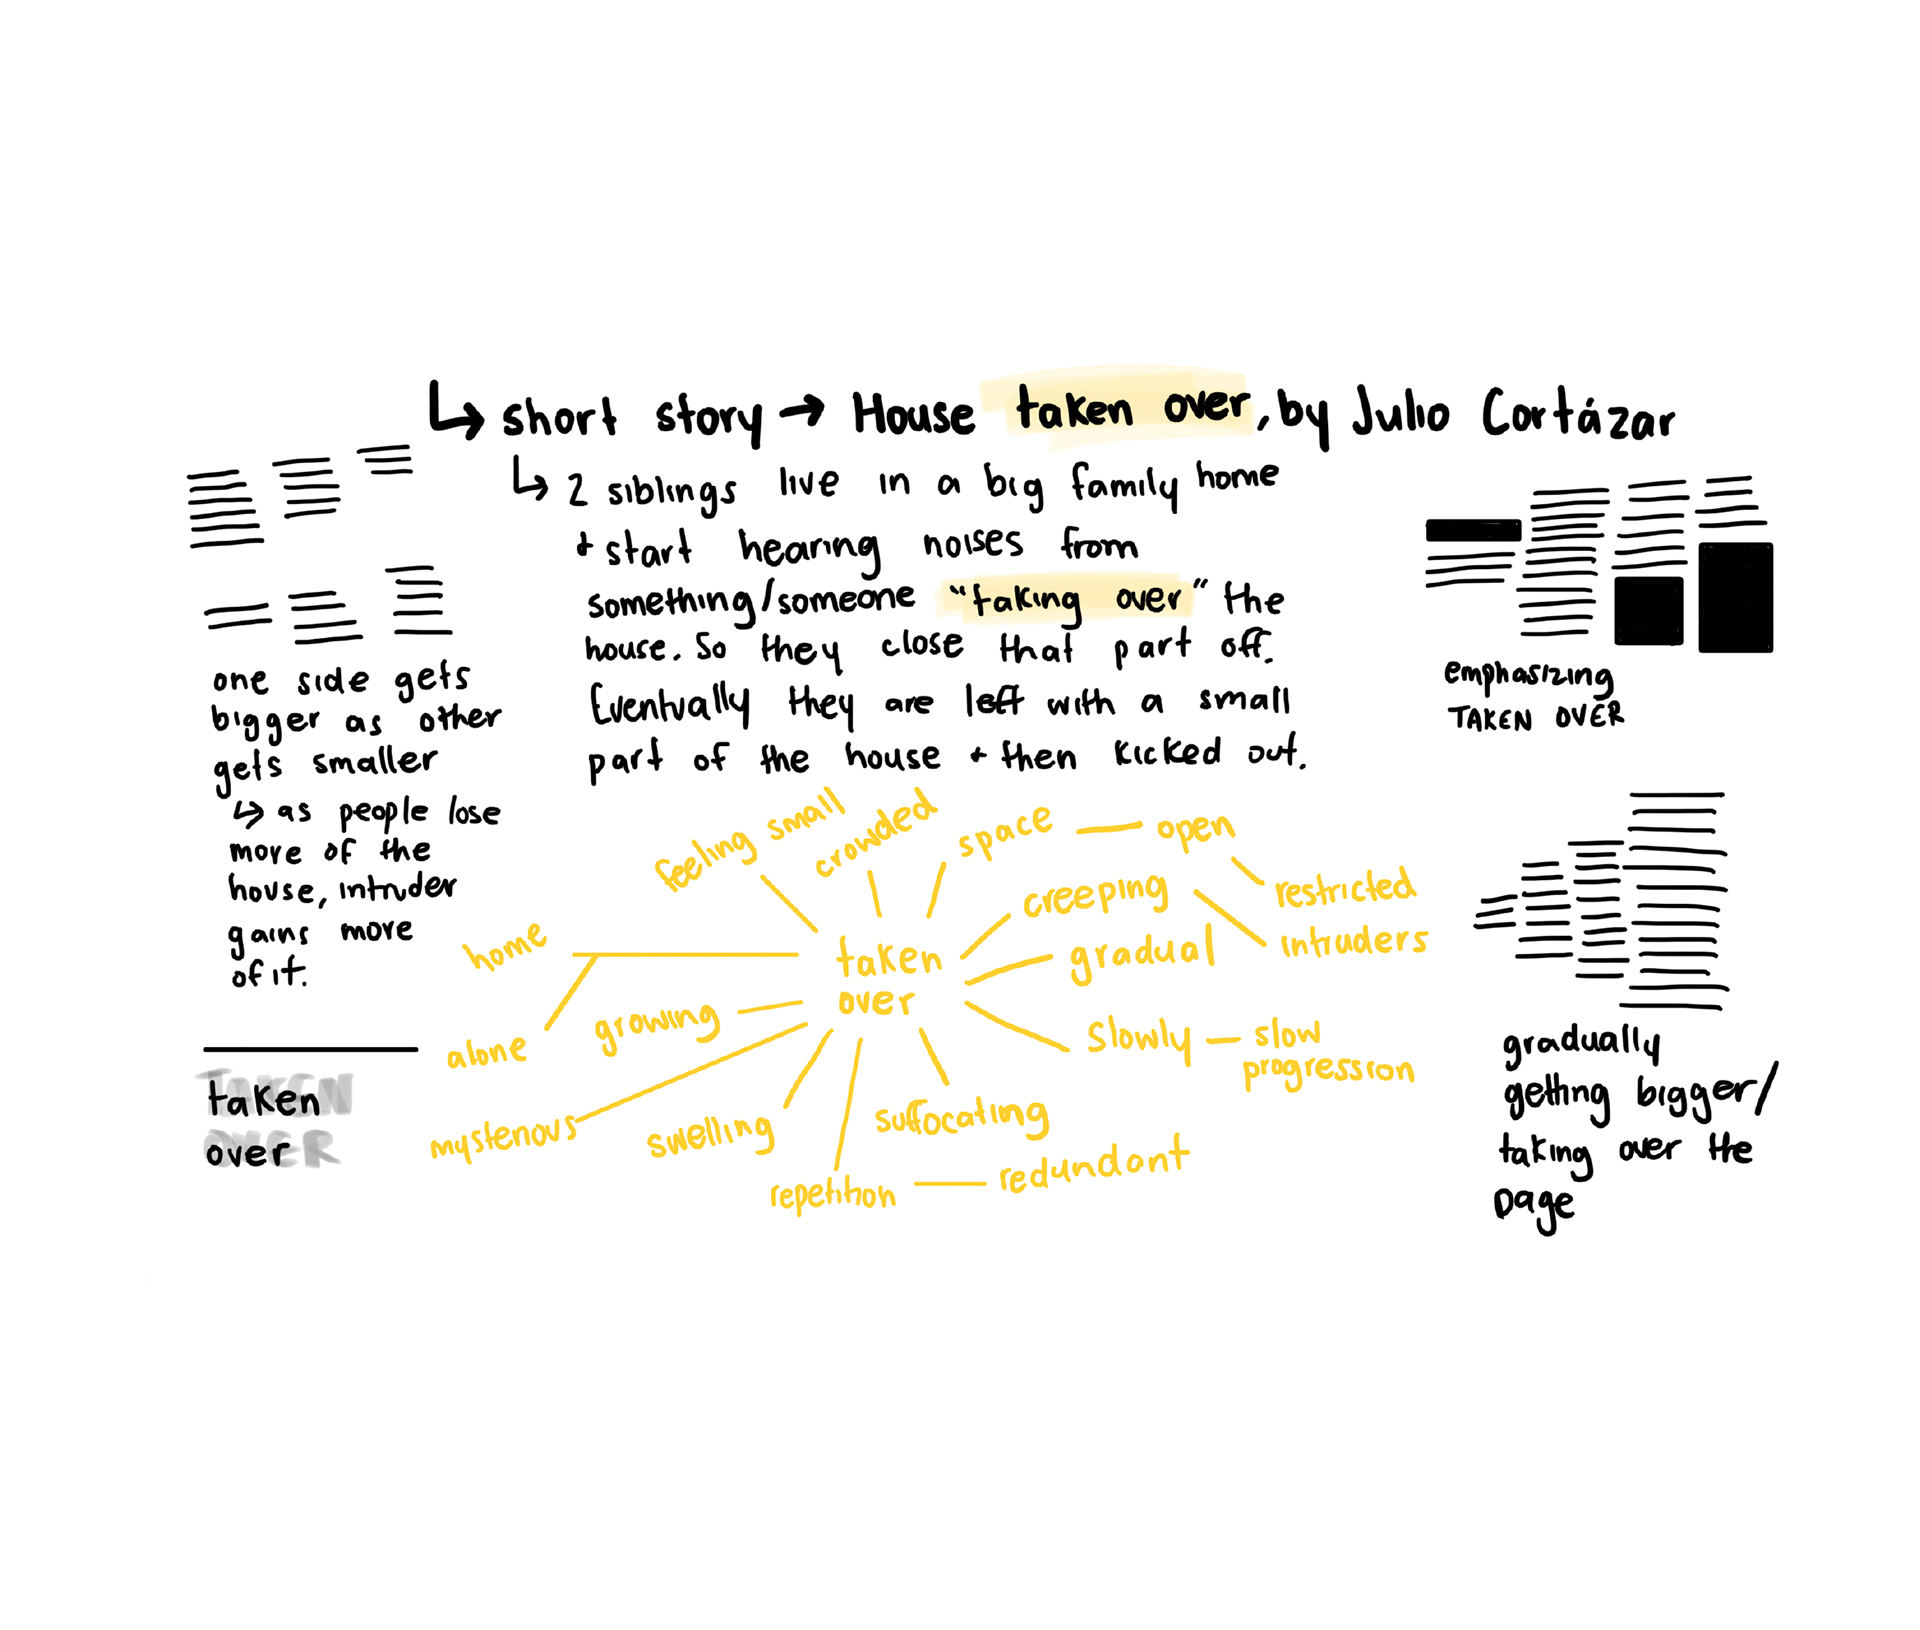 ↳ short story → House taken over, by Julio Cortázar
↳ 2 siblings live in a big family home
+ start hearing noises from
something/someone "taking over" the
house. So they close that part off.
Eventually they are left with a small
part of the house + then kicked out.
one side gets
bigger as other
gets smaller
↳ as people lose
more of the
house, intruder
gains more
of it.
taken
over
TAKEN
OVER
emphasizing
TAKEN OVER
gradually
getting bigger/
taking over the
page
taken
over
feeling small
crowded
space — open
restricted
creeping
intruders
gradual
slowly — slow
progression
suffocating
repetition — redundant
swelling
mysterious
growing
home
alone